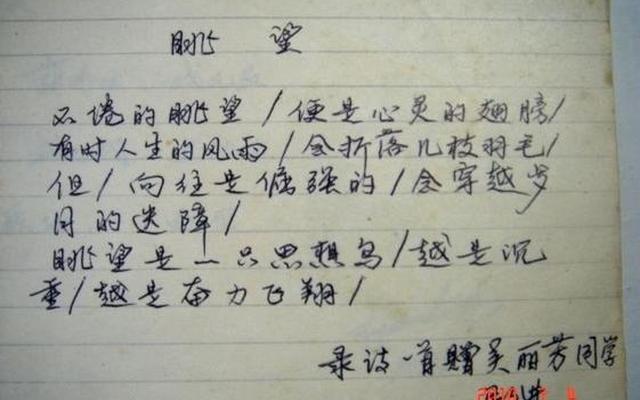 眺 望
不倦的眺望/便是心灵的翅膀/
有时人生的风雨/会折落几枝羽毛/
但/向往是倔强的/会穿越岁
月的迷障/
眺望是一只思想鸟/越是沉
重/越是奋力飞翔/
录诗一首赠吴丽芳同学